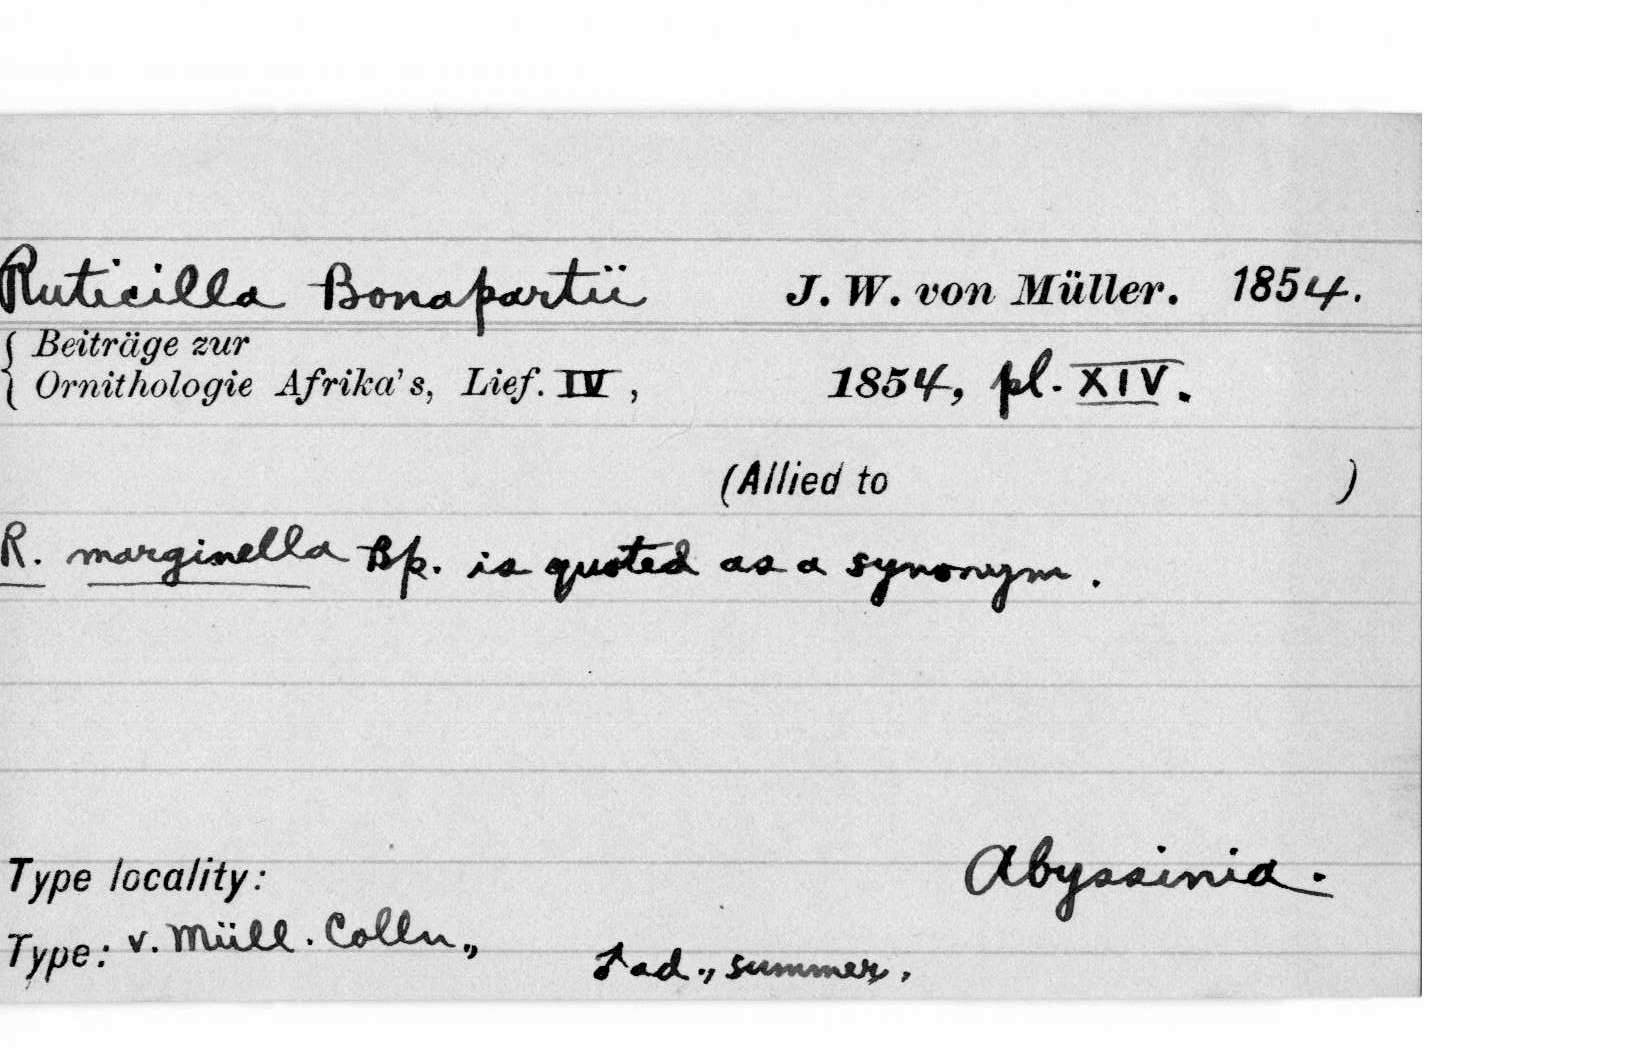 Ruticilla Bonapartii J. W. von Müller. 1854.
{ Beiträge zur
Ornithologie Afrika's, Lief. IV, 1854, pl. XIV.
(Allied to )
R. marginella Bp. is quoted as a synonym.
Type locality: Abyssinia.
Type: v. Müll. Colln., ♂ ad., summer.